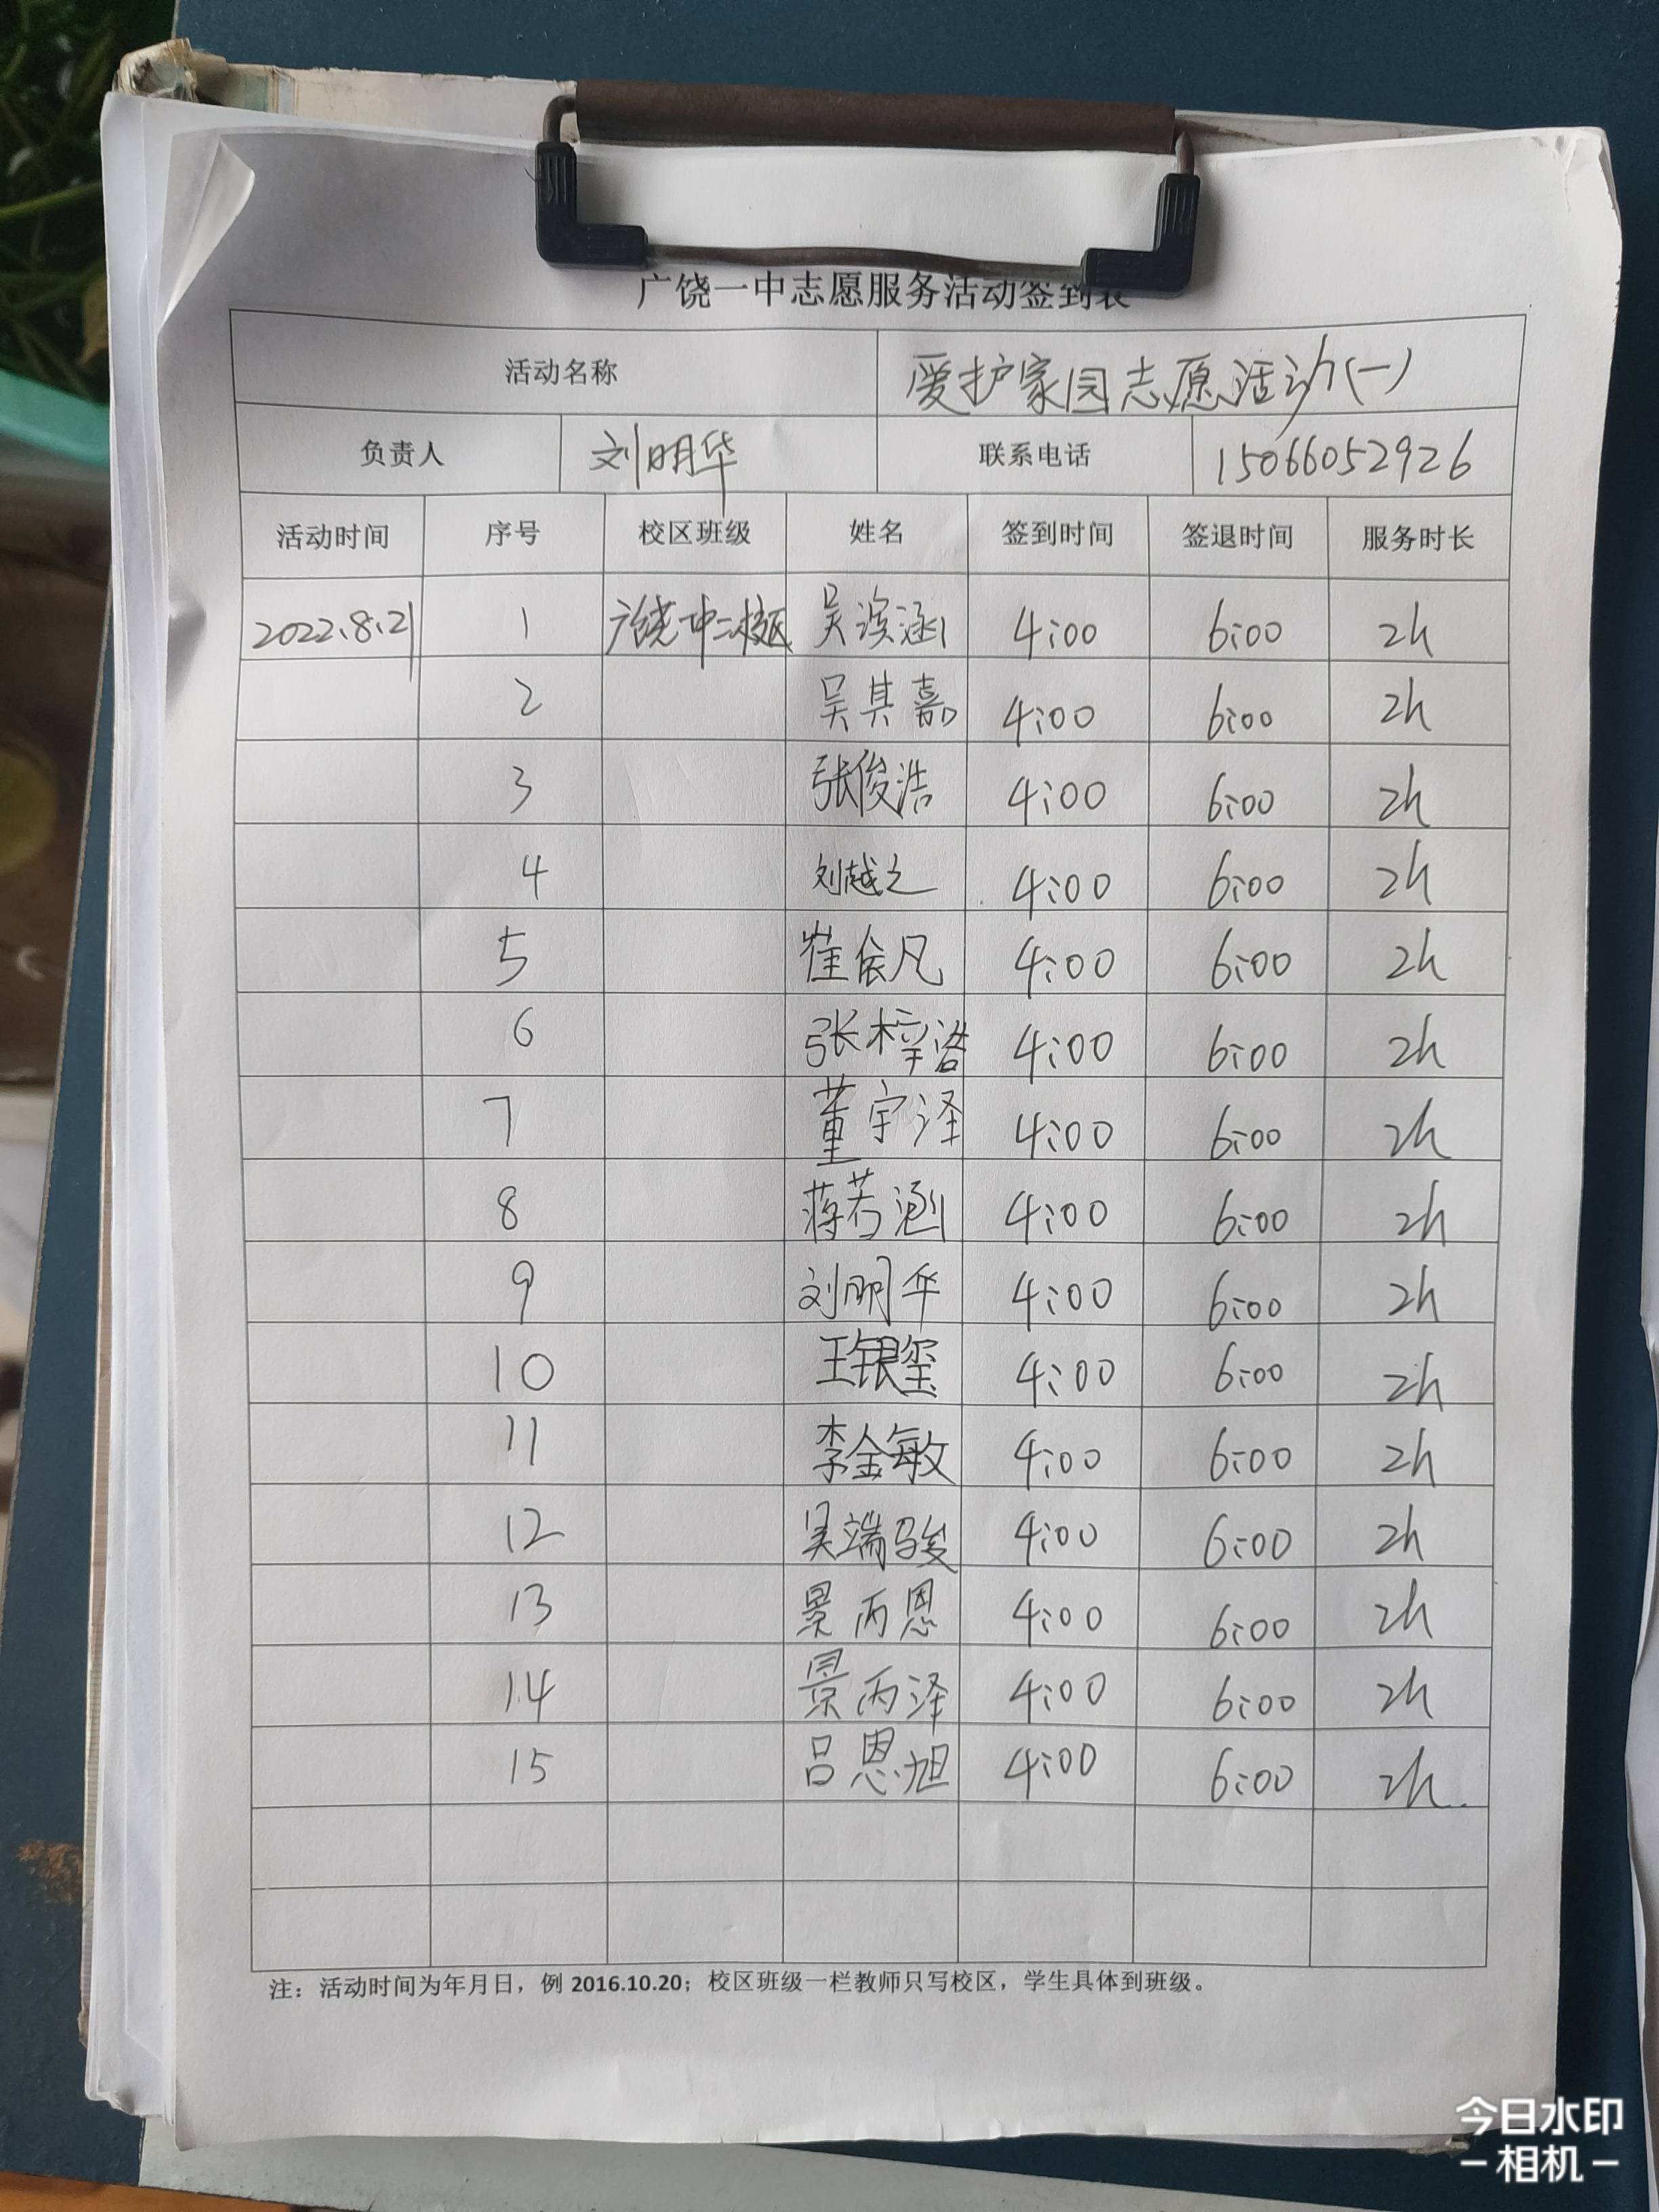 广饶一中志愿服务活动签到表
活动名称 爱护家园志愿活动(一)
负责人 刘明华 联系电话 15066052926
活动时间 序号 校区班级 姓名 签到时间 签退时间 服务时长
2022.8.21 1 广饶一中二校区 吴滨涵 4:00 6:00 2h
2 吴其嘉 4:00 6:00 2h
3 张俊浩 4:00 6:00 2h
4 刘越之 4:00 6:00 2h
5 崔俟凡 4:00 6:00 2h
6 张梓浴 4:00 6:00 2h
7 董宇泽 4:00 6:00 2h
8 蒋若涵 4:00 6:00 2h
9 刘明华 4:00 6:00 2h
10 王银玺 4:00 6:00 2h
11 李金敏 4:00 6:00 2h
12 吴端骏 4:00 6:00 2h
13 景丙恩 4:00 6:00 2h
14 景丙泽 4:00 6:00 2h
15 吕恩旭 4:00 6:00 2h
注：活动时间为年月日，例 2016.10.20；校区班级一栏教师只写校区，学生具体到班级。
今日水印
相机